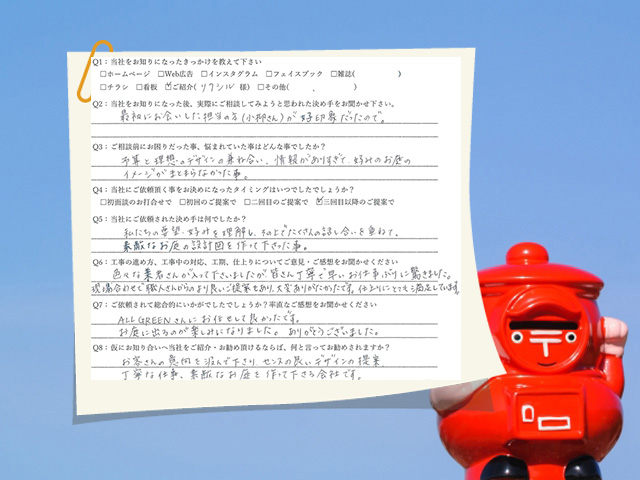 Q1：当社をお知りになったきっかけを教えて下さい
□ホームページ □Web広告 □インスタグラム □フェイスブック □雑誌( )
□チラシ □看板 ☑ご紹介( リクシル 様) □その他( )
Q2：当社をお知りになった後、実際にご相談してみようと思われた決め手をお聞かせ下さい。
最初にお会いした担当の方(小柳さん)が好印象だったので。
Q3：ご相談前にお困りだった事、悩まれていた事はどんな事でしたか？
予算と理想のデザインの兼ね合い、情報がありすぎて 好みのお庭の
イメージがまとまらなかった事。
Q4：当社にご依頼頂く事をお決めになったタイミングはいつでしたでしょうか？
□初面談のお打合せで □初回のご提案で □二回目のご提案で ☑三回目以降のご提案で
Q5：当社にご依頼された決め手は何でしたか？
私たちの要望・好みを理解し、その上でたくさんの話し合いを重ねて、
素敵なお庭の設計図を作って下さった事。
Q6：工事の進め方、工事中の対応、工期、仕上りについてご意見・ご感想をお聞かせください
色々な業者さんが入って下さいましたが皆さん丁寧で早いお仕事ぶりに驚きました。
現場合わせで職人さんからのより良いご提案もあり、大変ありがたかったです。仕上りにとても満足しています。
Q7：ご依頼されて総合的にいかがでしたでしょうか？率直なご感想をお聞かせください
ALL GREENさんにお任せして良かったです。
お庭に出るのが楽しみになりました。ありがとうございました。
Q8：仮にお知り合いへ当社をご紹介・お勧め頂けるならば、何と言ってお勧めされますか？
お客さんの意向を汲んで下さり、センスの良いデザインの提案
丁寧な仕事、素敵なお庭を作って下さる会社です。